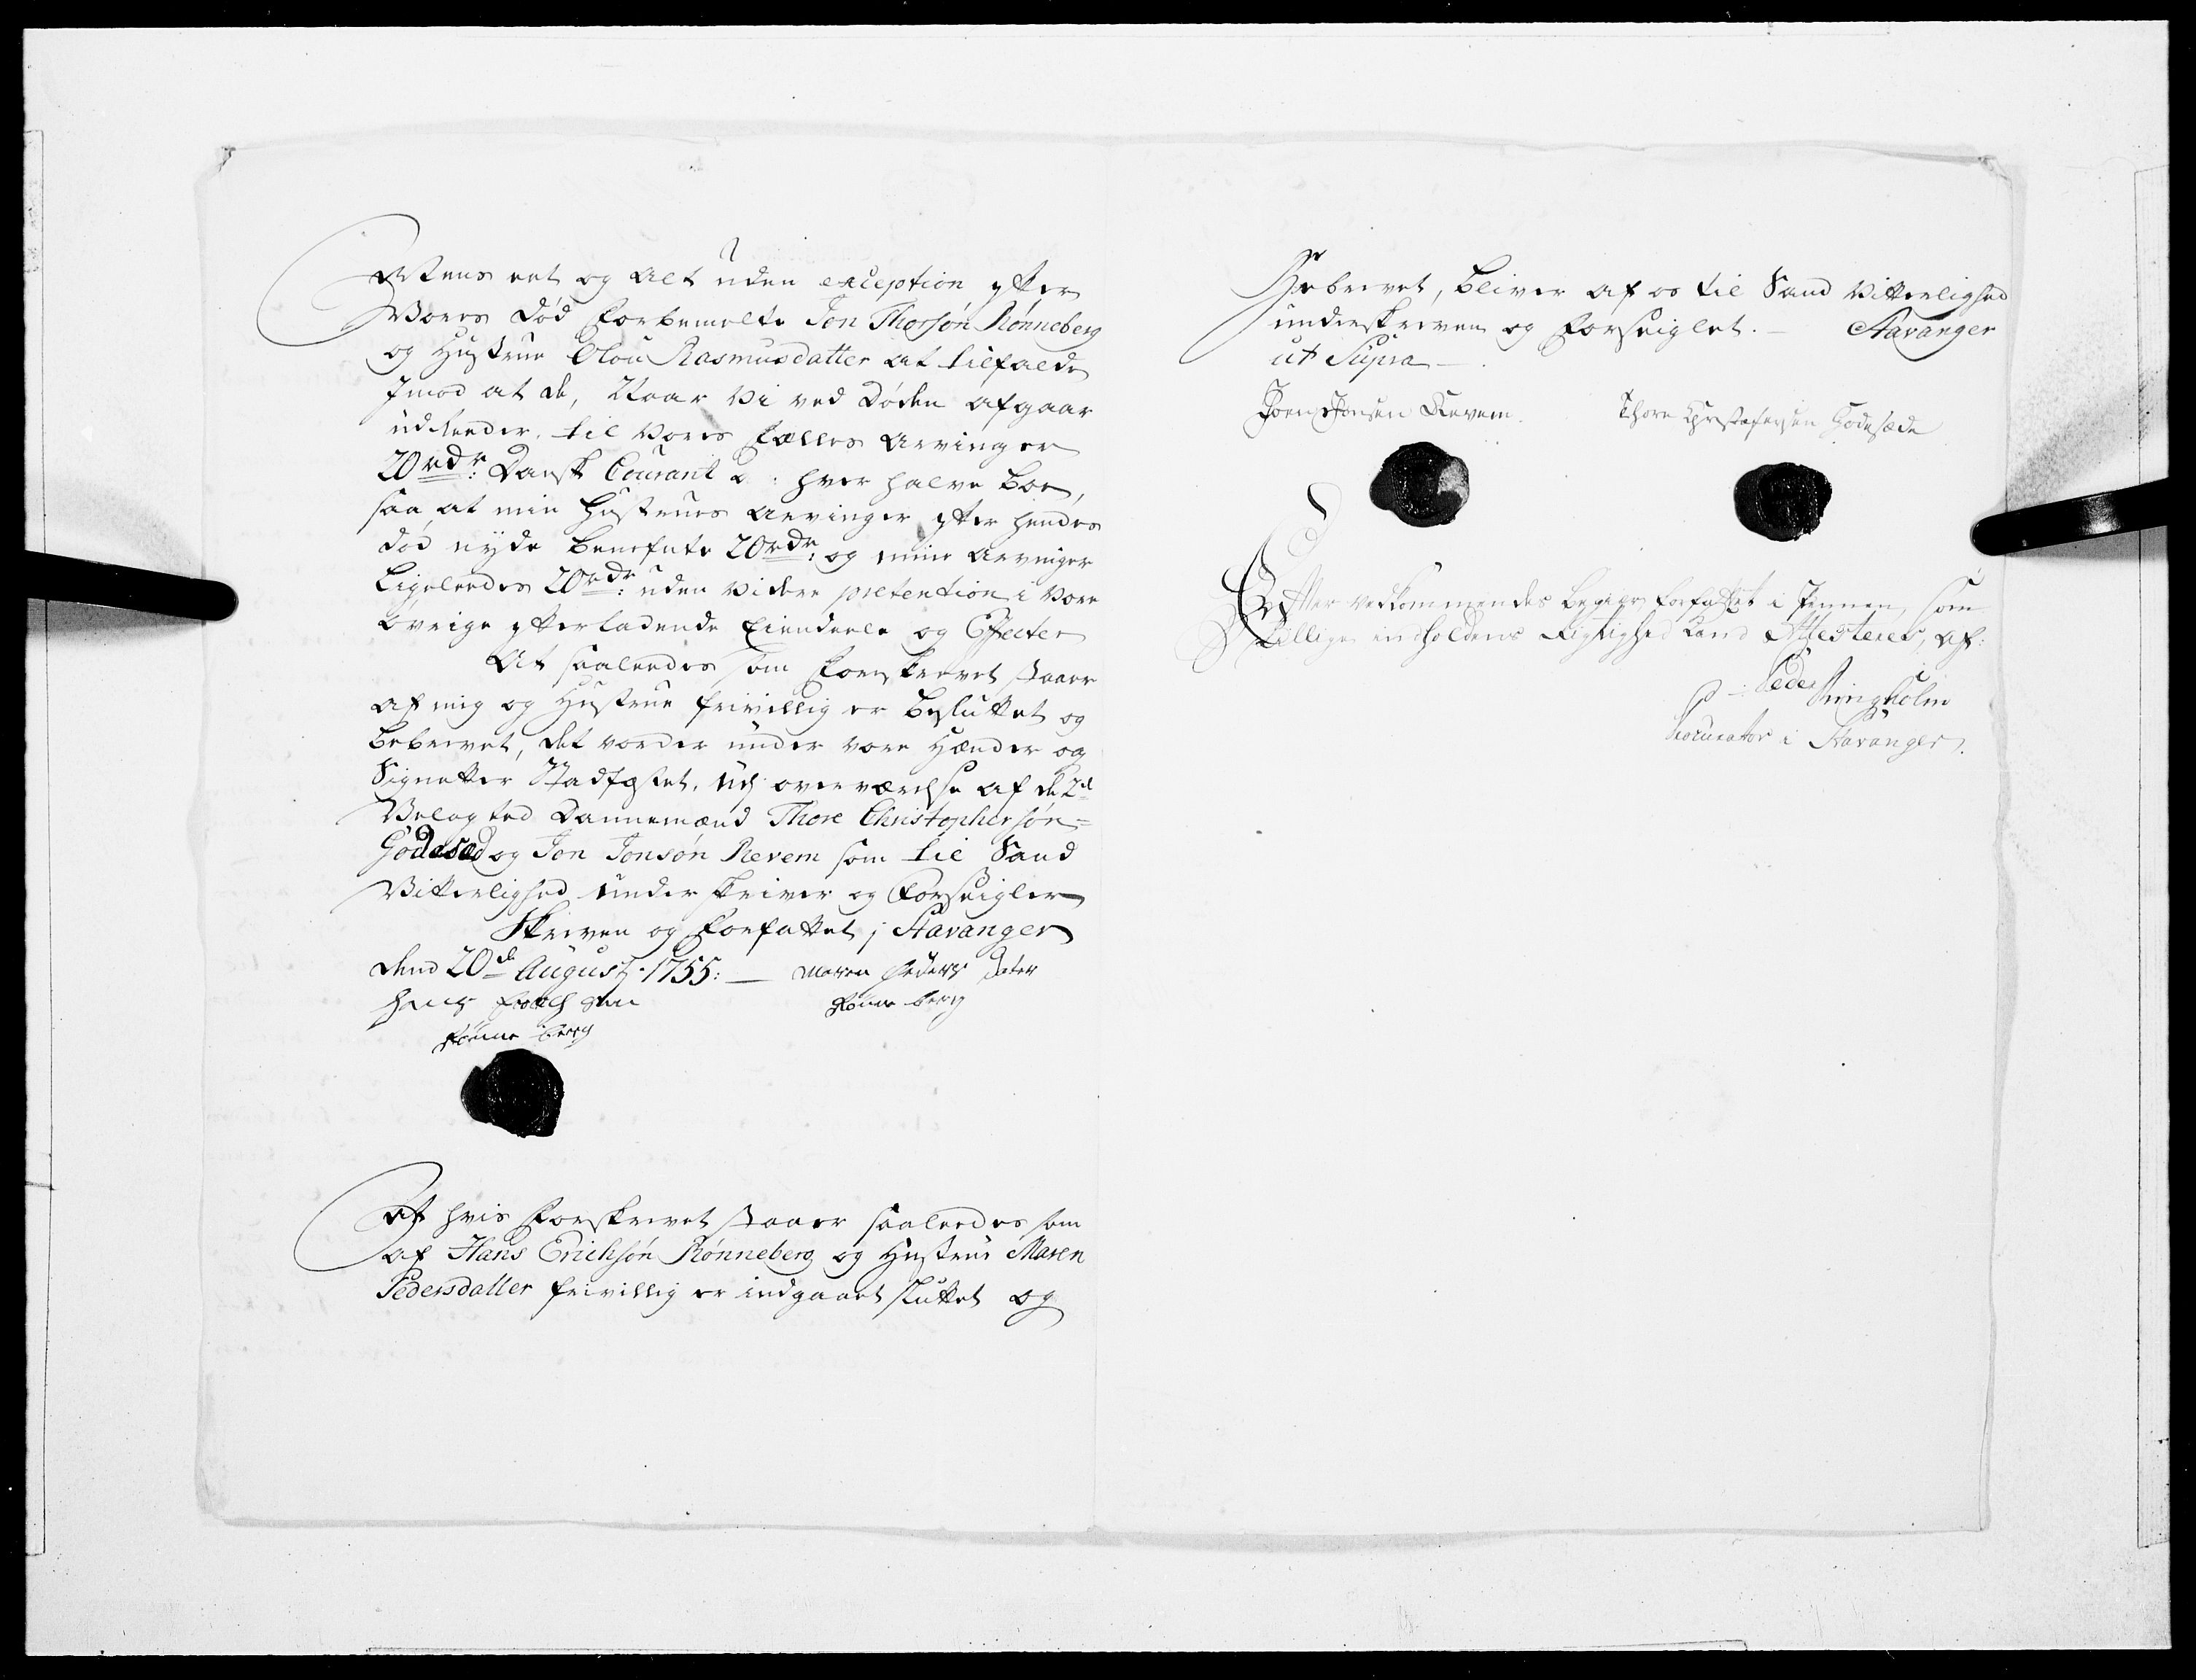 Wens eet og alt uden exception efter
Vores død forbemelte Jon Thorsøn Rønneberg
og Hustrue Olou Rasmusdatter at tilfalde
Imod at de, Naar vi ved Døden afgaar
udreeder, til vores fælles arvinger
20 rdr: Dansk Courant a: hver halve Boe,
saa at min Hustrues arvinger efter hendes
død nyde benefnte 20 rdr: og mine arvinger
Ligeleedes 20 rdr: uden videre pretention i vore
øvrige efterladende Eiendeele og Effecter
At saaleedes som forskrevet staaer
af mig og Hustrue frivillig er besluttet og
bebrevet, det vorder under vore Hænder og
Signetter Stadfæstet, udj overværelse af de 2de
Velagted Dannemænd Thore Christophersøn=
Gødesæd og Jon Jonsøn Revem som til Sand
Vitterlighed underskriver og Forseigler
Skreven og forfattet i Stavanger
dend 20de August: 1755:— Maren Peders Dater
Hans Erich søn Rønne berg
Rønne berg
At hvis forskrevet staaer saaleedes som
af Hans Erichsøn Rønneberg og Hustrue Maren
Pedersdatter frivillig er indgaaet sluttet og
bebrevet, bliver af os til Sand Vitterlighed
underskreven og forseiglet.— Stavanger
ut Supra—
Joen Jonsen Revem. Thore Christofersen Godesæde
Efter vedkommendes begier forfattet i Pennen, som
tillige indholdens Rigtighed kand Attesterer, af:
Peder Ringholm
Procurator i Stavanger.